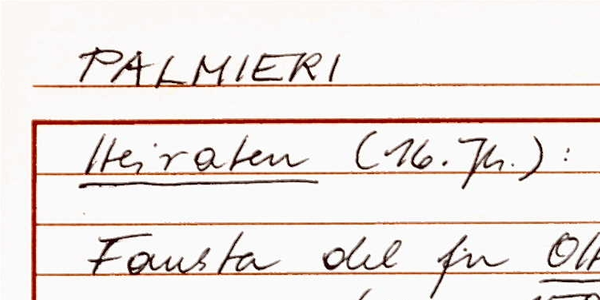 PALMIERI
Heiraten (16. Jh.):
Fausta del fu